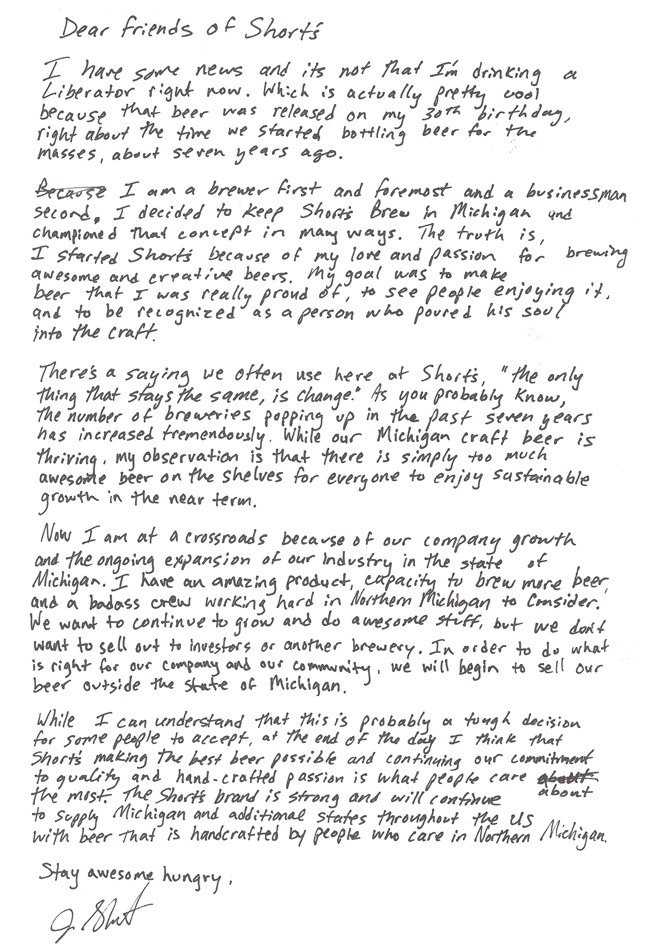 Dear friends of Short's
I have some news and its not that I'm drinking a
Liberator right now. Which is actually pretty cool
because that beer was released on my 30th birthday,
right about the time we started bottling beer for the
masses, about seven years ago.
Because I am a brewer first and foremost and a businessman
second, I decided to keep Short's Brew in Michigan and
championed that concept in many ways. The truth is,
I started Short's because of my love and passion for brewing
awesome and creative beers. My goal was to make
beer that I was really proud of, to see people enjoying it,
and to be recognized as a person who poured his soul
into the craft.
There's a saying we often use here at Short's, "the only
thing that stays the same, is change." As you probably know,
the number of breweries popping up in the past seven years
has increased tremendously. While our Michigan craft beer is
thriving, my observation is that there is simply too much
awesome beer on the shelves for everyone to enjoy sustainable
growth in the near term.
Now I am at a crossroads because of our company growth
and the ongoing expansion of our industry in the state of
Michigan. I have an amazing product, capacity to brew more beer,
and a badass crew working hard in Northern Michigan to consider.
We want to continue to grow and do awesome stuff, but we don't
want to sell out to investors or another brewery. In order to do what
is right for our company and our community, we will begin to sell our
beer outside the state of Michigan.
While I can understand that this is probably a tough decision
for some people to accept, at the end of the day I think that
Short's making the best beer possible and continuing our commitment
to quality and hand-crafted passion is what people care about
about
the most. The Short's brand is strong and will continue
to supply Michigan and additional states throughout the US
with beer that is handcrafted by people who care in Northern Michigan.
Stay awesome hungry,
J. Short